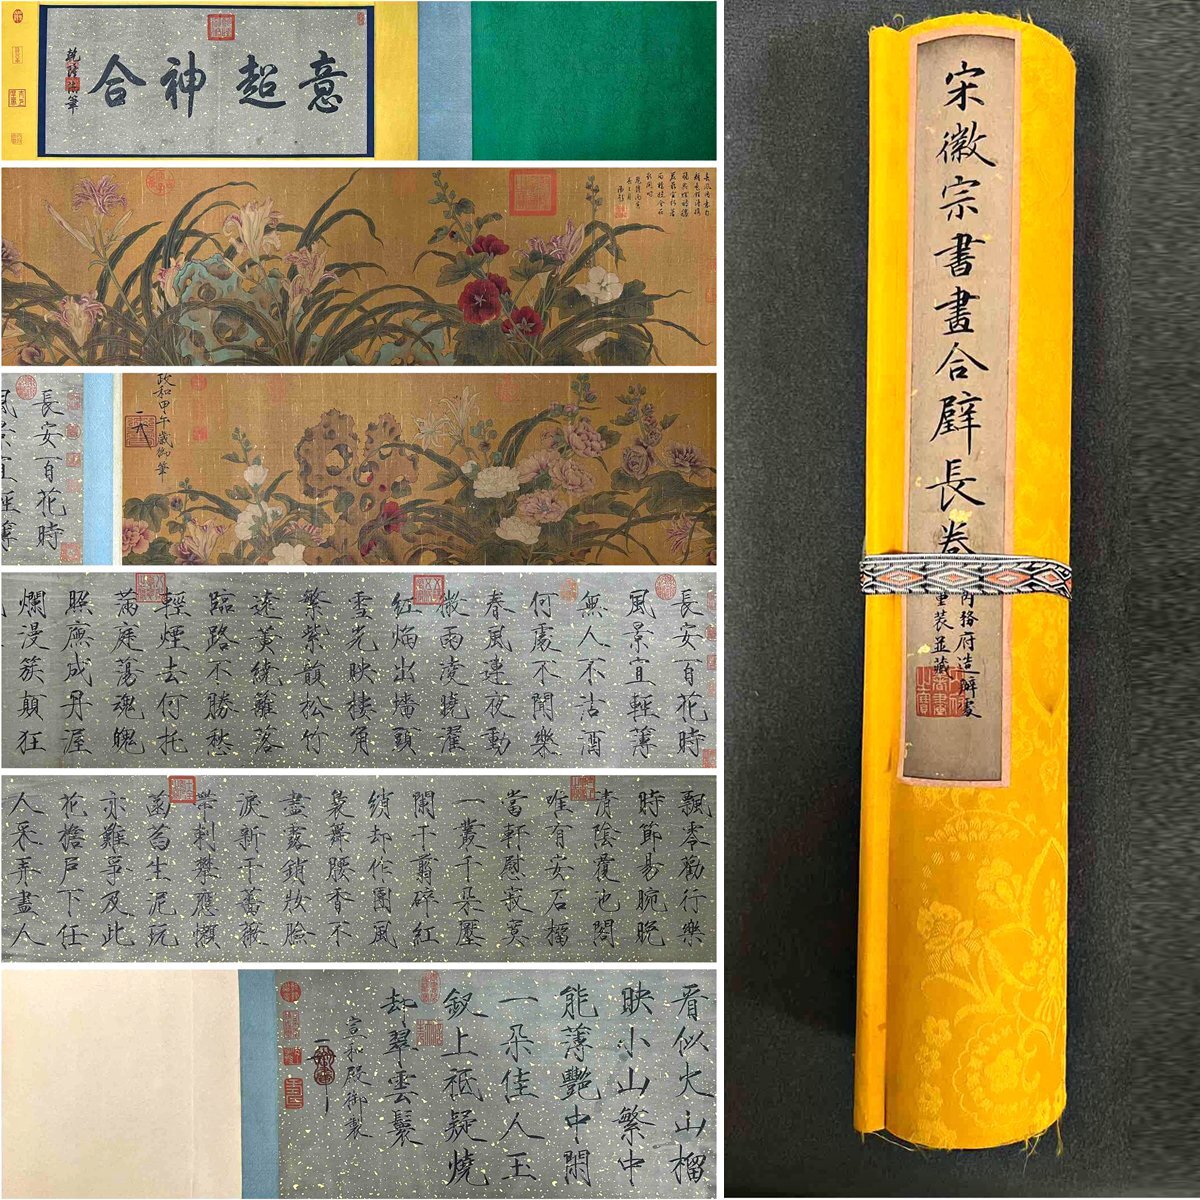 意超神合
乾隆御筆
政和甲午歲御筆
長安百花時
風景宜輕薄
長安百花時
風景宜輕薄
無人不沽酒
何處不聞樂
春風連夜動
微雨凌曉濯
紅焰出墻頭
雪光映樓角
繁紫韻松竹
遠黃繞籬落
臨路不勝愁
輕煙去何托
滿庭蕩魂魄
照廡成丹渥
爛漫簇顛狂
飄零勸行樂
時節易晼晚
清陰覆池閣
唯有安石榴
當軒慰寂寞
一叢千朵壓
闌干翦碎紅
綃却作團風
裊舞腰香不
盡露銷妝臉
淚新干薔薇
帶刺攀應懶
菡萏生泥玩
亦難爭及此
花檐戶下任
人采弄盡人
看似火山榴
映小山繁中
能薄艷中閑
一朵佳人玉
釵上祗疑燒
却翠雲鬟
宣和殿御製
宋徽宗書畫合璧長卷
內務府造辦處
重裝並藏